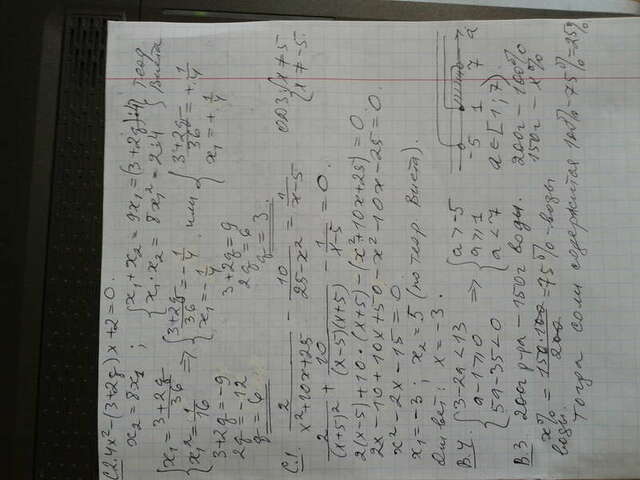 С2. 4x²-(3+2q)x+2=0.
x₂=8x₁ ; { x₁+x₂=9x₁=(3+2q):4 } Теор.
x₁·x₂=8x₁²=2:4 } Виета
{ x₁=(3+2q)/36
x₁²=1/16 => { (3+2q)/36=-1/4
x₁=-1/4 . или { (3+2q)/36=+1/4
x₁=+1/4
3+2q=-9
2q=-12
q=-6
3+2q=9
2q=6
q=3.
С.1. 2/(x²+10x+25) - 10/(25-x²) = 1/(x-5) ОДЗ { x≠5
x≠-5.
2/(x+5)² + 10/((x-5)(x+5)) - 1/(x-5) =0.
2(x-5)+10·(x+5)-(x²+10x+25)=0
2x-10+10x+50-x²-10x-25=0.
x²-2x-15=0
x₁=-3; x₂=5 (по теор. Виета).
Ответ: x=-3.
В.4. { 3-2a<13
a-1≥0
5a-35<0 => { a>-5
a≥1
a<7
-5 1 7 a
a∈[1;7)
В.3. 200г р-ра - 150г воды. 200г-100%
150г-x%
x%=150·100/200=75%-воды
Тогда соли содержится 100%-75%=25%